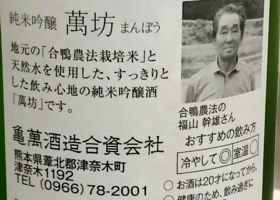 純米吟醸 萬坊 まんぼう
地元の「合鴨農法栽培米」と
天然水を使用した、すっきりと
した飲み心地の純米吟醸酒
「萬坊」です。
亀萬酒造合資会社
熊本県葦北郡津奈木町
津奈木1192
TEL (0966) 78-2001
合鴨農法の
福山 幹雄さん
おすすめの飲み方
冷やして◎ 室温○
○お酒は20才になってから。
○健康のため、飲み過ぎに